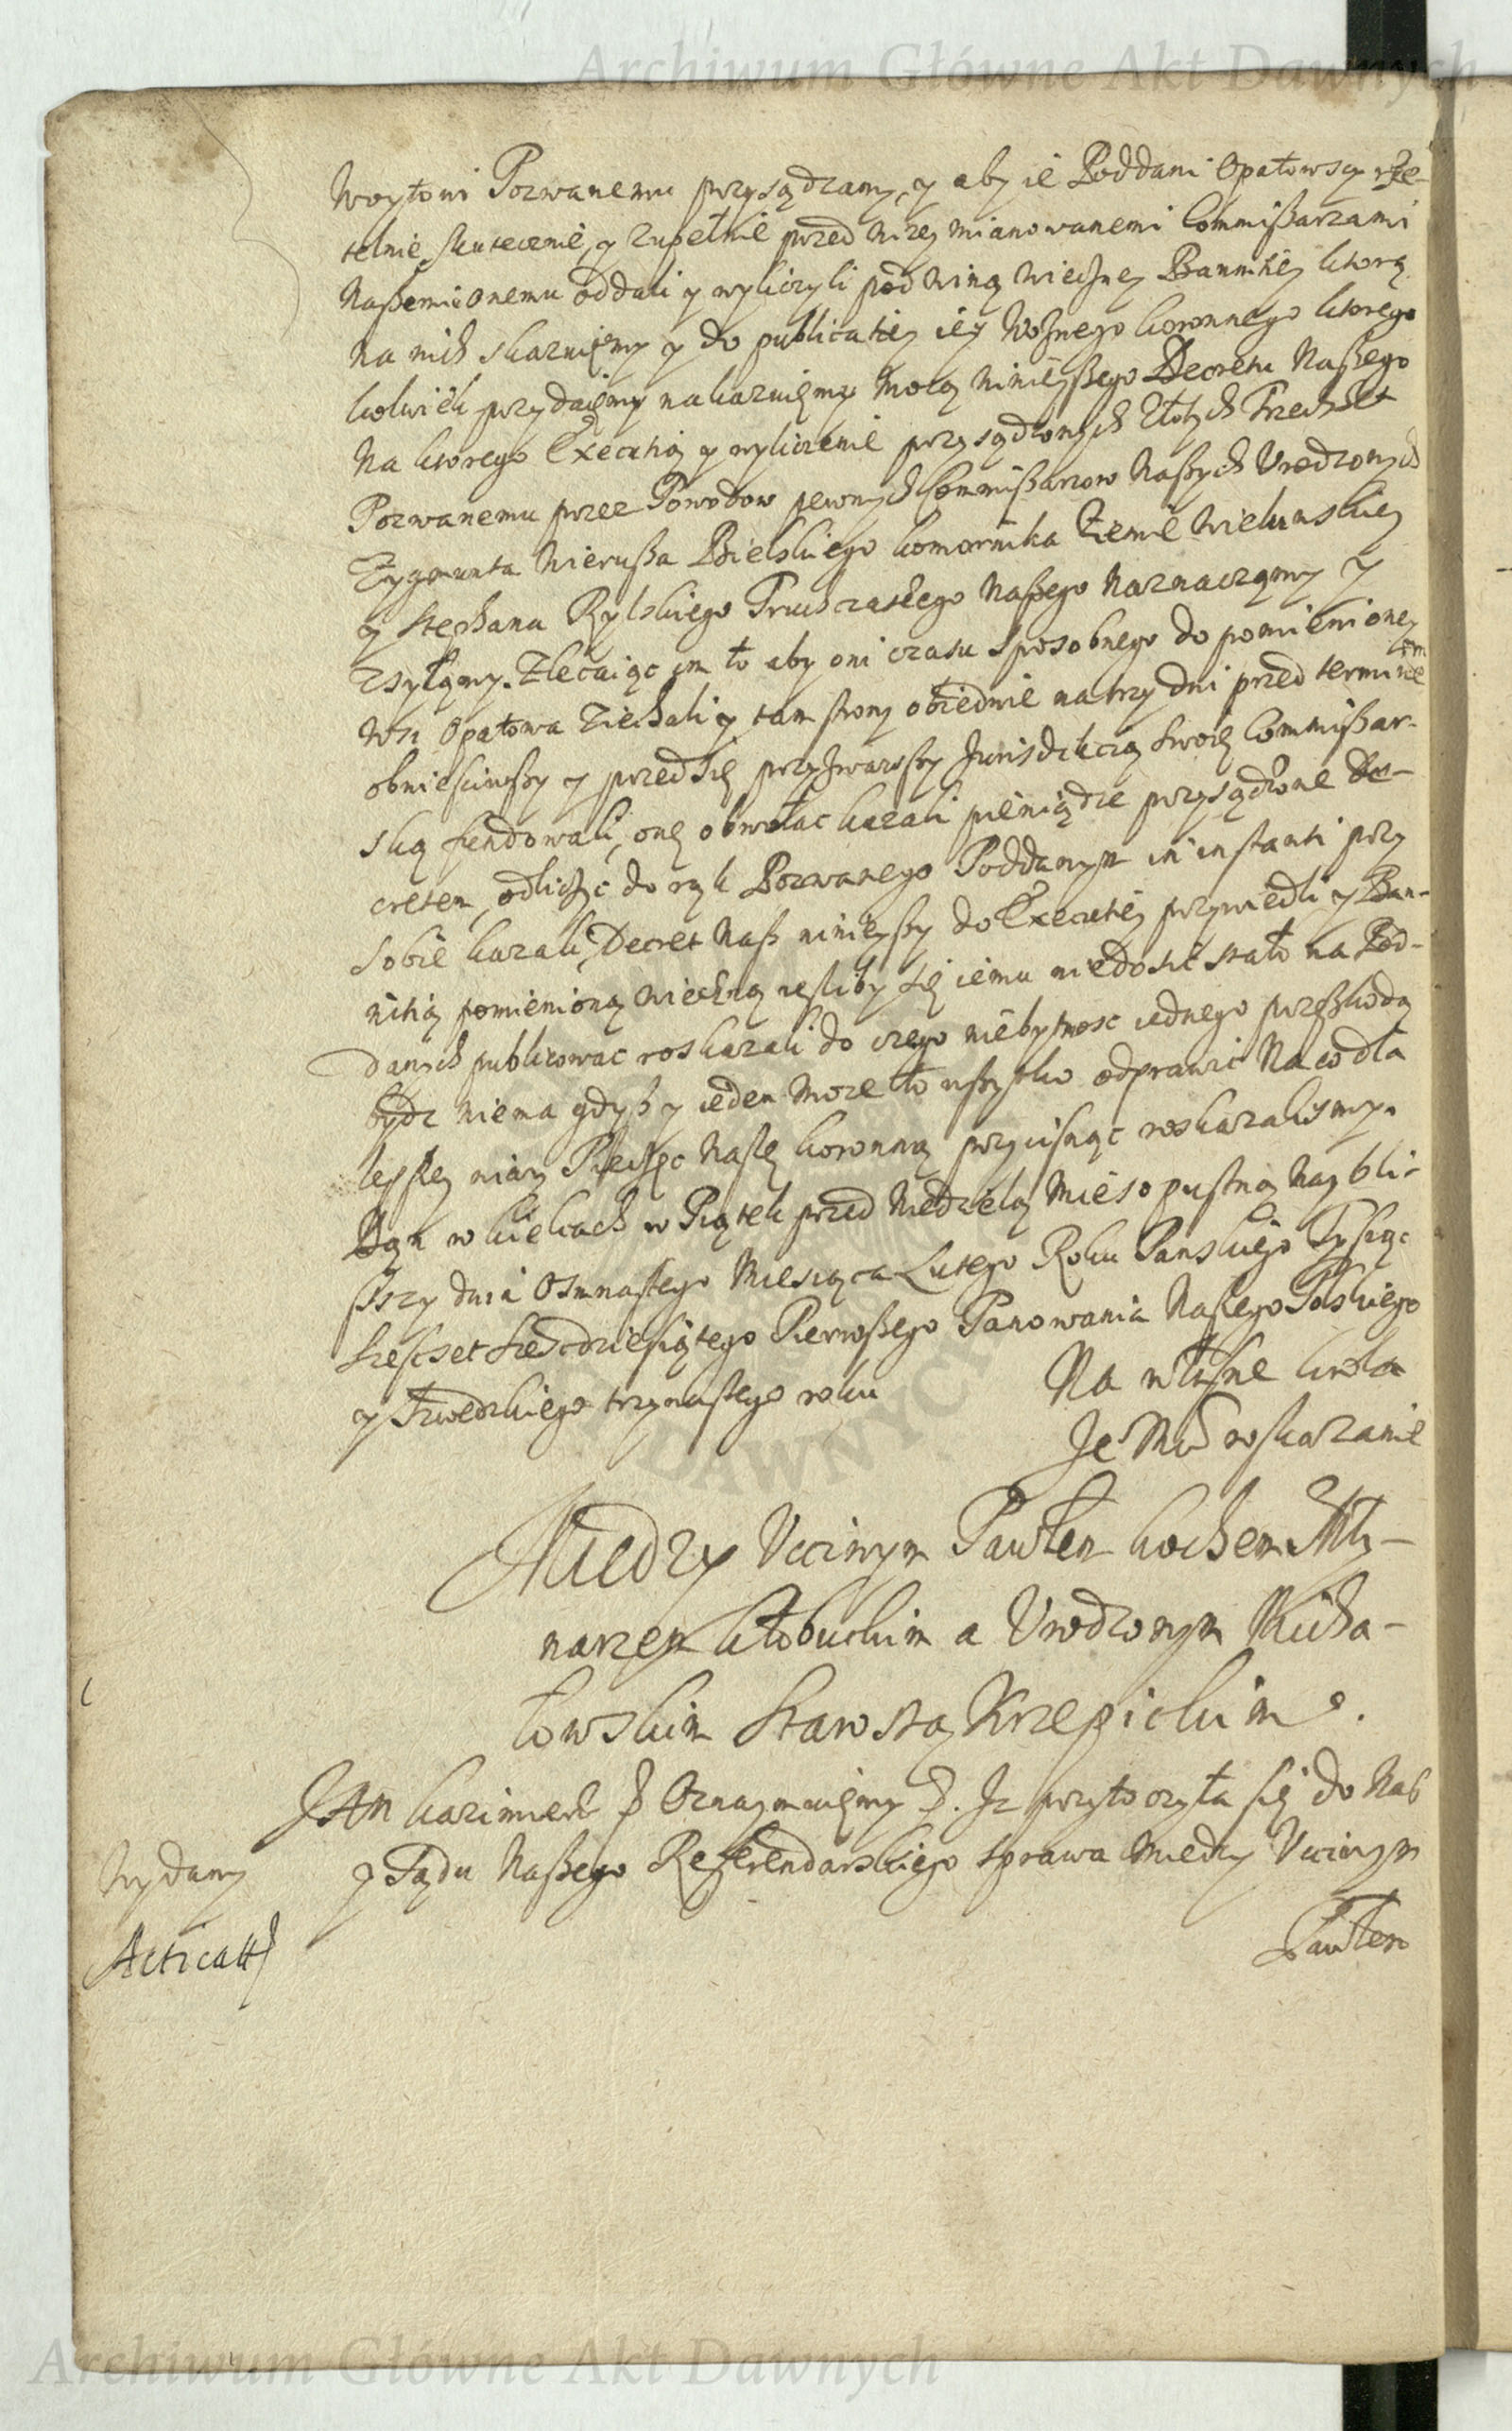 Archiwum Główne Akt Dawnych
Woytowi Pozwanemu przysądzamy, y aby ie Poddani Opatowscy rze-
telnie, skutecznie, y zupełnie przed niżey mianowanemi Commißarzami
Naßemi onemu oddali y wyliczyli pod winą wieczney Bannitiey ktorą
na nich skazuięmy y do publicatiey iey Woźnego koronnego ktorego
kolwiek przydaięmy nakazuięmy mocą ninieyßego Decretu Naßego
Na ktorego Execatią y wyliczenie przysądzonych Złotych Trzechset
Pozwanemu przez Powodow pewnych Commißarzow Naßych Urodzonych
Zygmunta Wierußa Bielskiego komornika Ziemie Wielunskiey
y Stephana Rylskiego Truckczaßego Naßego Naznaczamy y
Zsyłamy. Zlecaiąc im to aby oni czasu sposobnego do pomienioney
Wsi Opatowa Ziechali y tam strony obiedwie na trzy dni przed terminem
obwieściwßy y przed się przyzwawßy Jurisdictią swoię Commißar-
ską fundowali, onę obwołac kazali pieniądze przysądzone De-
cretem, odliczyc do rąk Pozwanego Poddanym in instanti przy
sobie kazali, Decret Naß ninieyßy do Executiey przywiedli y Ban-
nitią pomienioną wieczną iesliby się iemu niedosic stało na Pod-
danych publicowac roskazali do czego niebytnosc iednego przeßkodą
bydz niema gdyż y ieden moze to wßystko odprawic Na co dla
lepßey wiary Pieczęc Naßę koronną przycisnąc roskazalismy.
Dan w kielcach w Piątek przed Niedzielą Mięsopustną Naybli-
ßszy dnia Osmnastego Miesiąca Lutego Roku Panskiego Tysiąc
Szescset Szescdziesiątego Pierwßego Panowania Naßego Polskiego
y Szwedzkiego trzynastego roku
Na własne krola
Je Mci roskazanie
Miedzy Uccziwym Pawłem kochem Mły-
narzem kłobuckim a Urodzonym Micha-
łowskim Starostą Krzepickim.
JAn kazimierz Oznaymuięmy. Jz przytoczyła się do Nas
y Sądu Naßego Referendarskiego sprawa miedzy Uccziwym
Pawłem
Wydany
Acticatt
Archiwum Główne Akt Dawnych